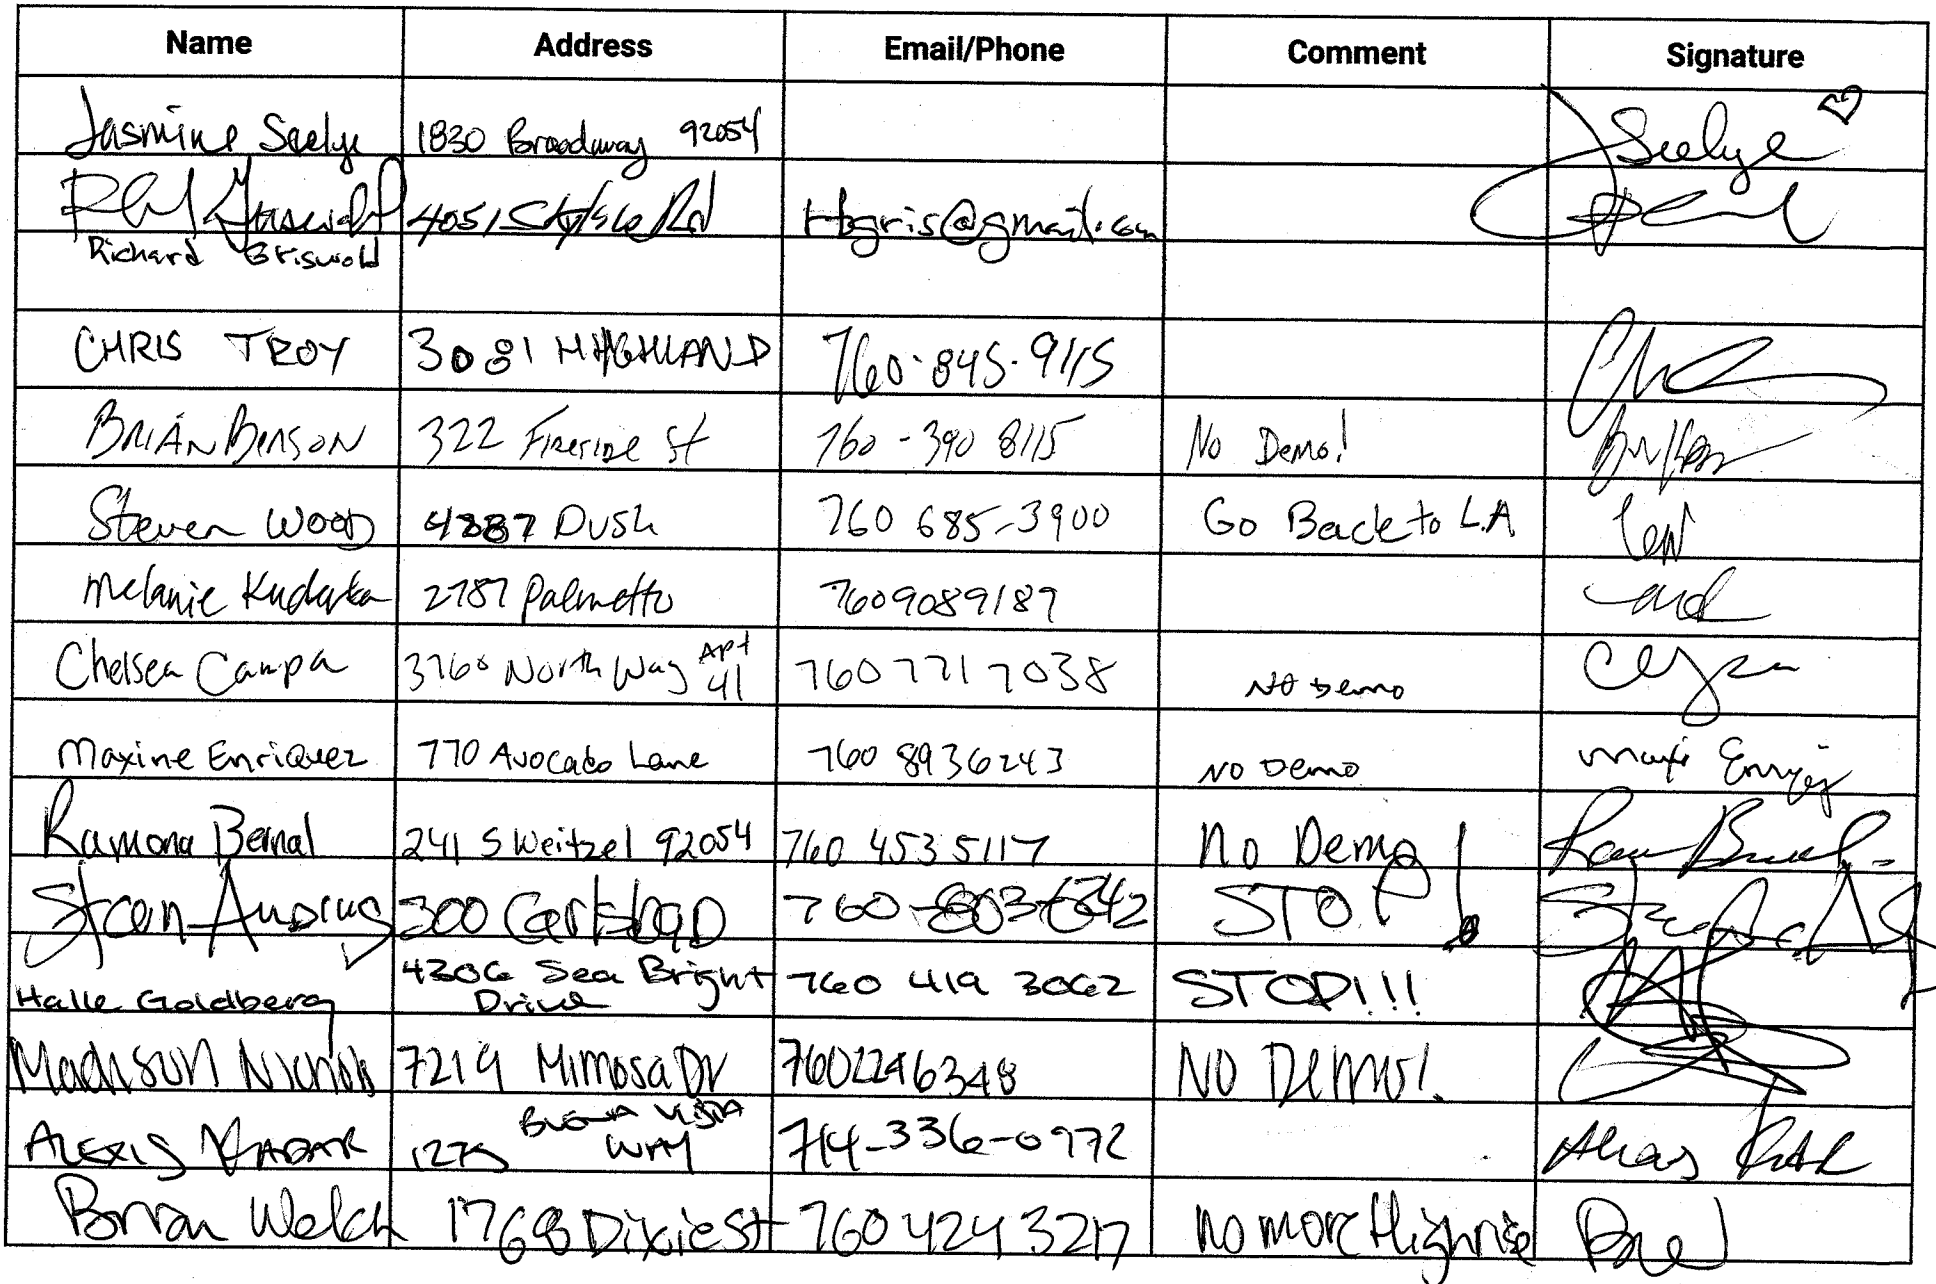 Name Address Email/Phone Comment Signature
Jasmine Seelye 1830 Broadway 92054 Seelye
4051 Rd Hbgris@gmail.com
Richard Griswold
CHRIS TROY 3081 HIGHLAND 760-845-9115
BRIAN BENSON 322 Fireside St 760-390 8115 No Demo!
Steven Wood 4887 Dush 760 685-3900 Go Back to L.A
Melanie 2787 Palmetto 7609089189
Chelsea Campa 3760 North Way Apt 41 760 771 7038 NO Demo
Maxine Enriquez 770 Avocado Lane 760 8936243 NO Demo
Ramona Bernal 241 S Weitzel 92054 760 453 5117 No Demo!
300 Carlsbad 760-803-6242 STOP!
Halle Goldberg 4306 Sea Bright Drive 760 419 3062 STOP!!!
Madison Nichols 7219 Mimosa Dr 7602246348 NO Demo!
ALEXIS KADAR 1275 BUENA VISTA WAY 714-336-0972
Brian Welch 1768 Dixie St 760 424 3217 no more Highrise